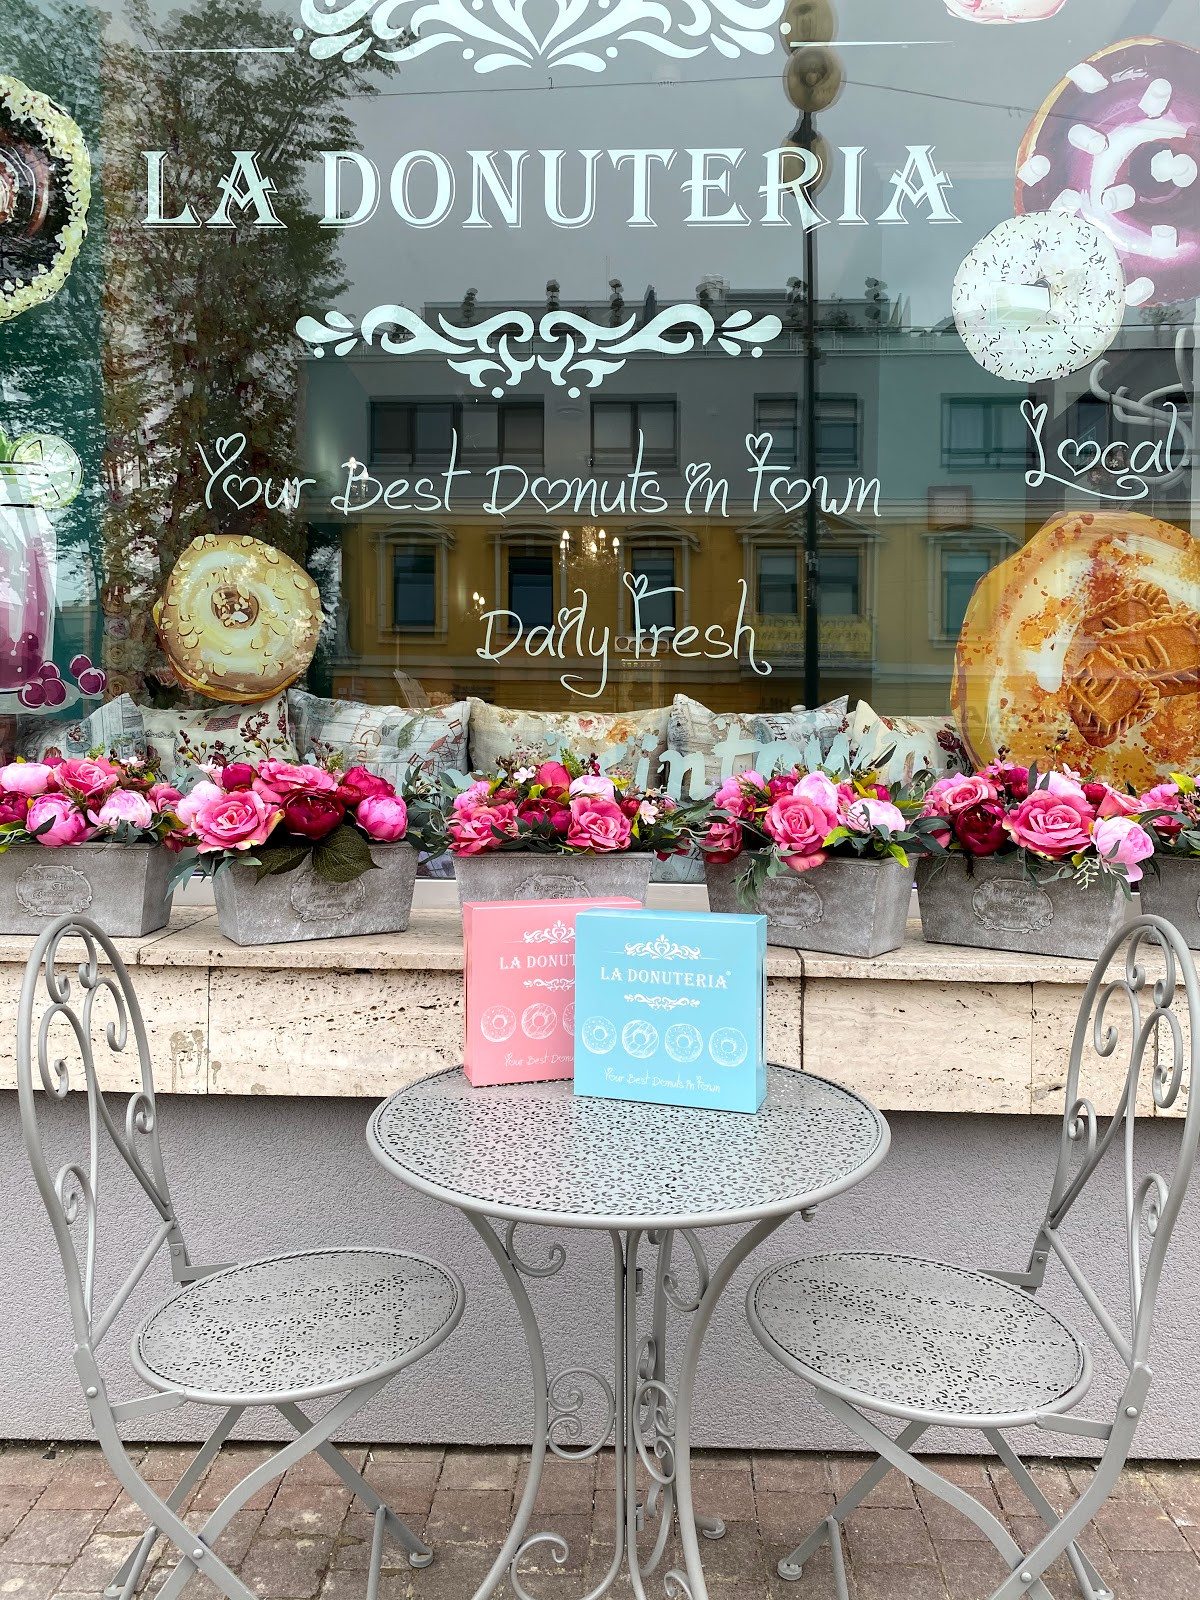 LA DONUTERIA
Your Best Donuts in Town
Local
Daily Fresh
in town
LA DONUT
Your Best Donu
LA DONUTERIA®
Your Best Donuts in Town